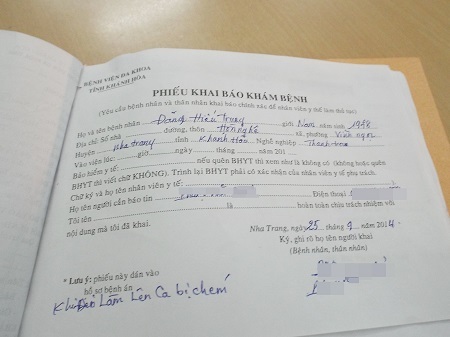 BỆNH VIỆN ĐA KHOA
TỈNH KHÁNH HÒA
PHIẾU KHAI BÁO KHÁM BỆNH
(Yêu cầu bệnh nhân và thân nhân khai báo chính xác để nhân viên y tế làm thủ tục)
Họ và tên bệnh nhân Đặng Hiếu Trung giới Nam, năm sinh 1948
Địa chỉ: Số nhà đường, thôn xã, phường Vĩnh ngọc
Huyện Nha trang tỉnh Khánh Hòa Nghề nghiệp
Vào viện lúc: giờ, ngày tháng năm 201
Bảo hiểm y tế: nếu quên BHYT thì xem như là không có (không hoặc quên
BHYT thì viết chữ KHÔNG). Trình lại BHYT phải có xác nhận của nhân viên y tế phụ trách.
Chữ ký và họ tên nhân viên y tế:
Họ tên người cần báo tin Điện thoại
Tôi tên là hoàn toàn chịu trách nhiệm với
nội dung mà tôi đã khai.
Nha Trang, ngày 25 tháng 9 năm 2014
Ký, ghi rõ họ tên người khai
(Bệnh nhân, thân nhân)
* Lưu ý: phiếu này dán vào
hồ sơ bệnh án
Lầm Lên Ca bị chém